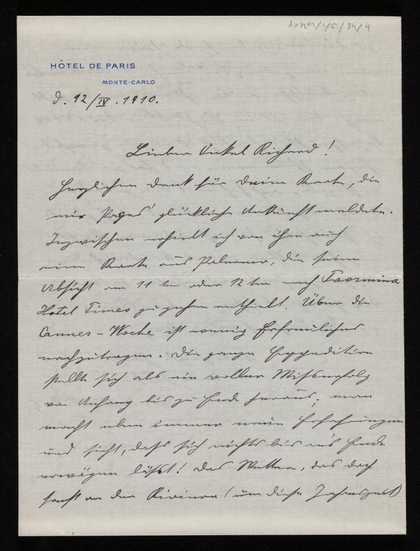 HÔTEL DE PARIS
MONTE-CARLO
d. 12/IV. 1910.
Lieber Onkel Richard!
Herzlichen Dank für Deine Karte, die
mir Papas' glückliche Ankunft meldete.
Inzwischen erhielt ich von ihm auch
eine Karte aus Palermo, die seine
Absicht am 11ten oder 12ten nach Taormina
Hôtel Times zu gehen mitteilt. Über die
Cannes-Woche ist wenig Erfreuliches
nachzutragen. Die ganze Expedition
stellte sich als ein voller Misserfolg
von Anfang bis zu Ende heraus; man
macht eben immer neue Erfahrungen
und sieht, dass sich nichts bis in's Ende
erwägen lässt! Das Wetter, das doch
sonst an der Riviera (um diese Jahreszeit)